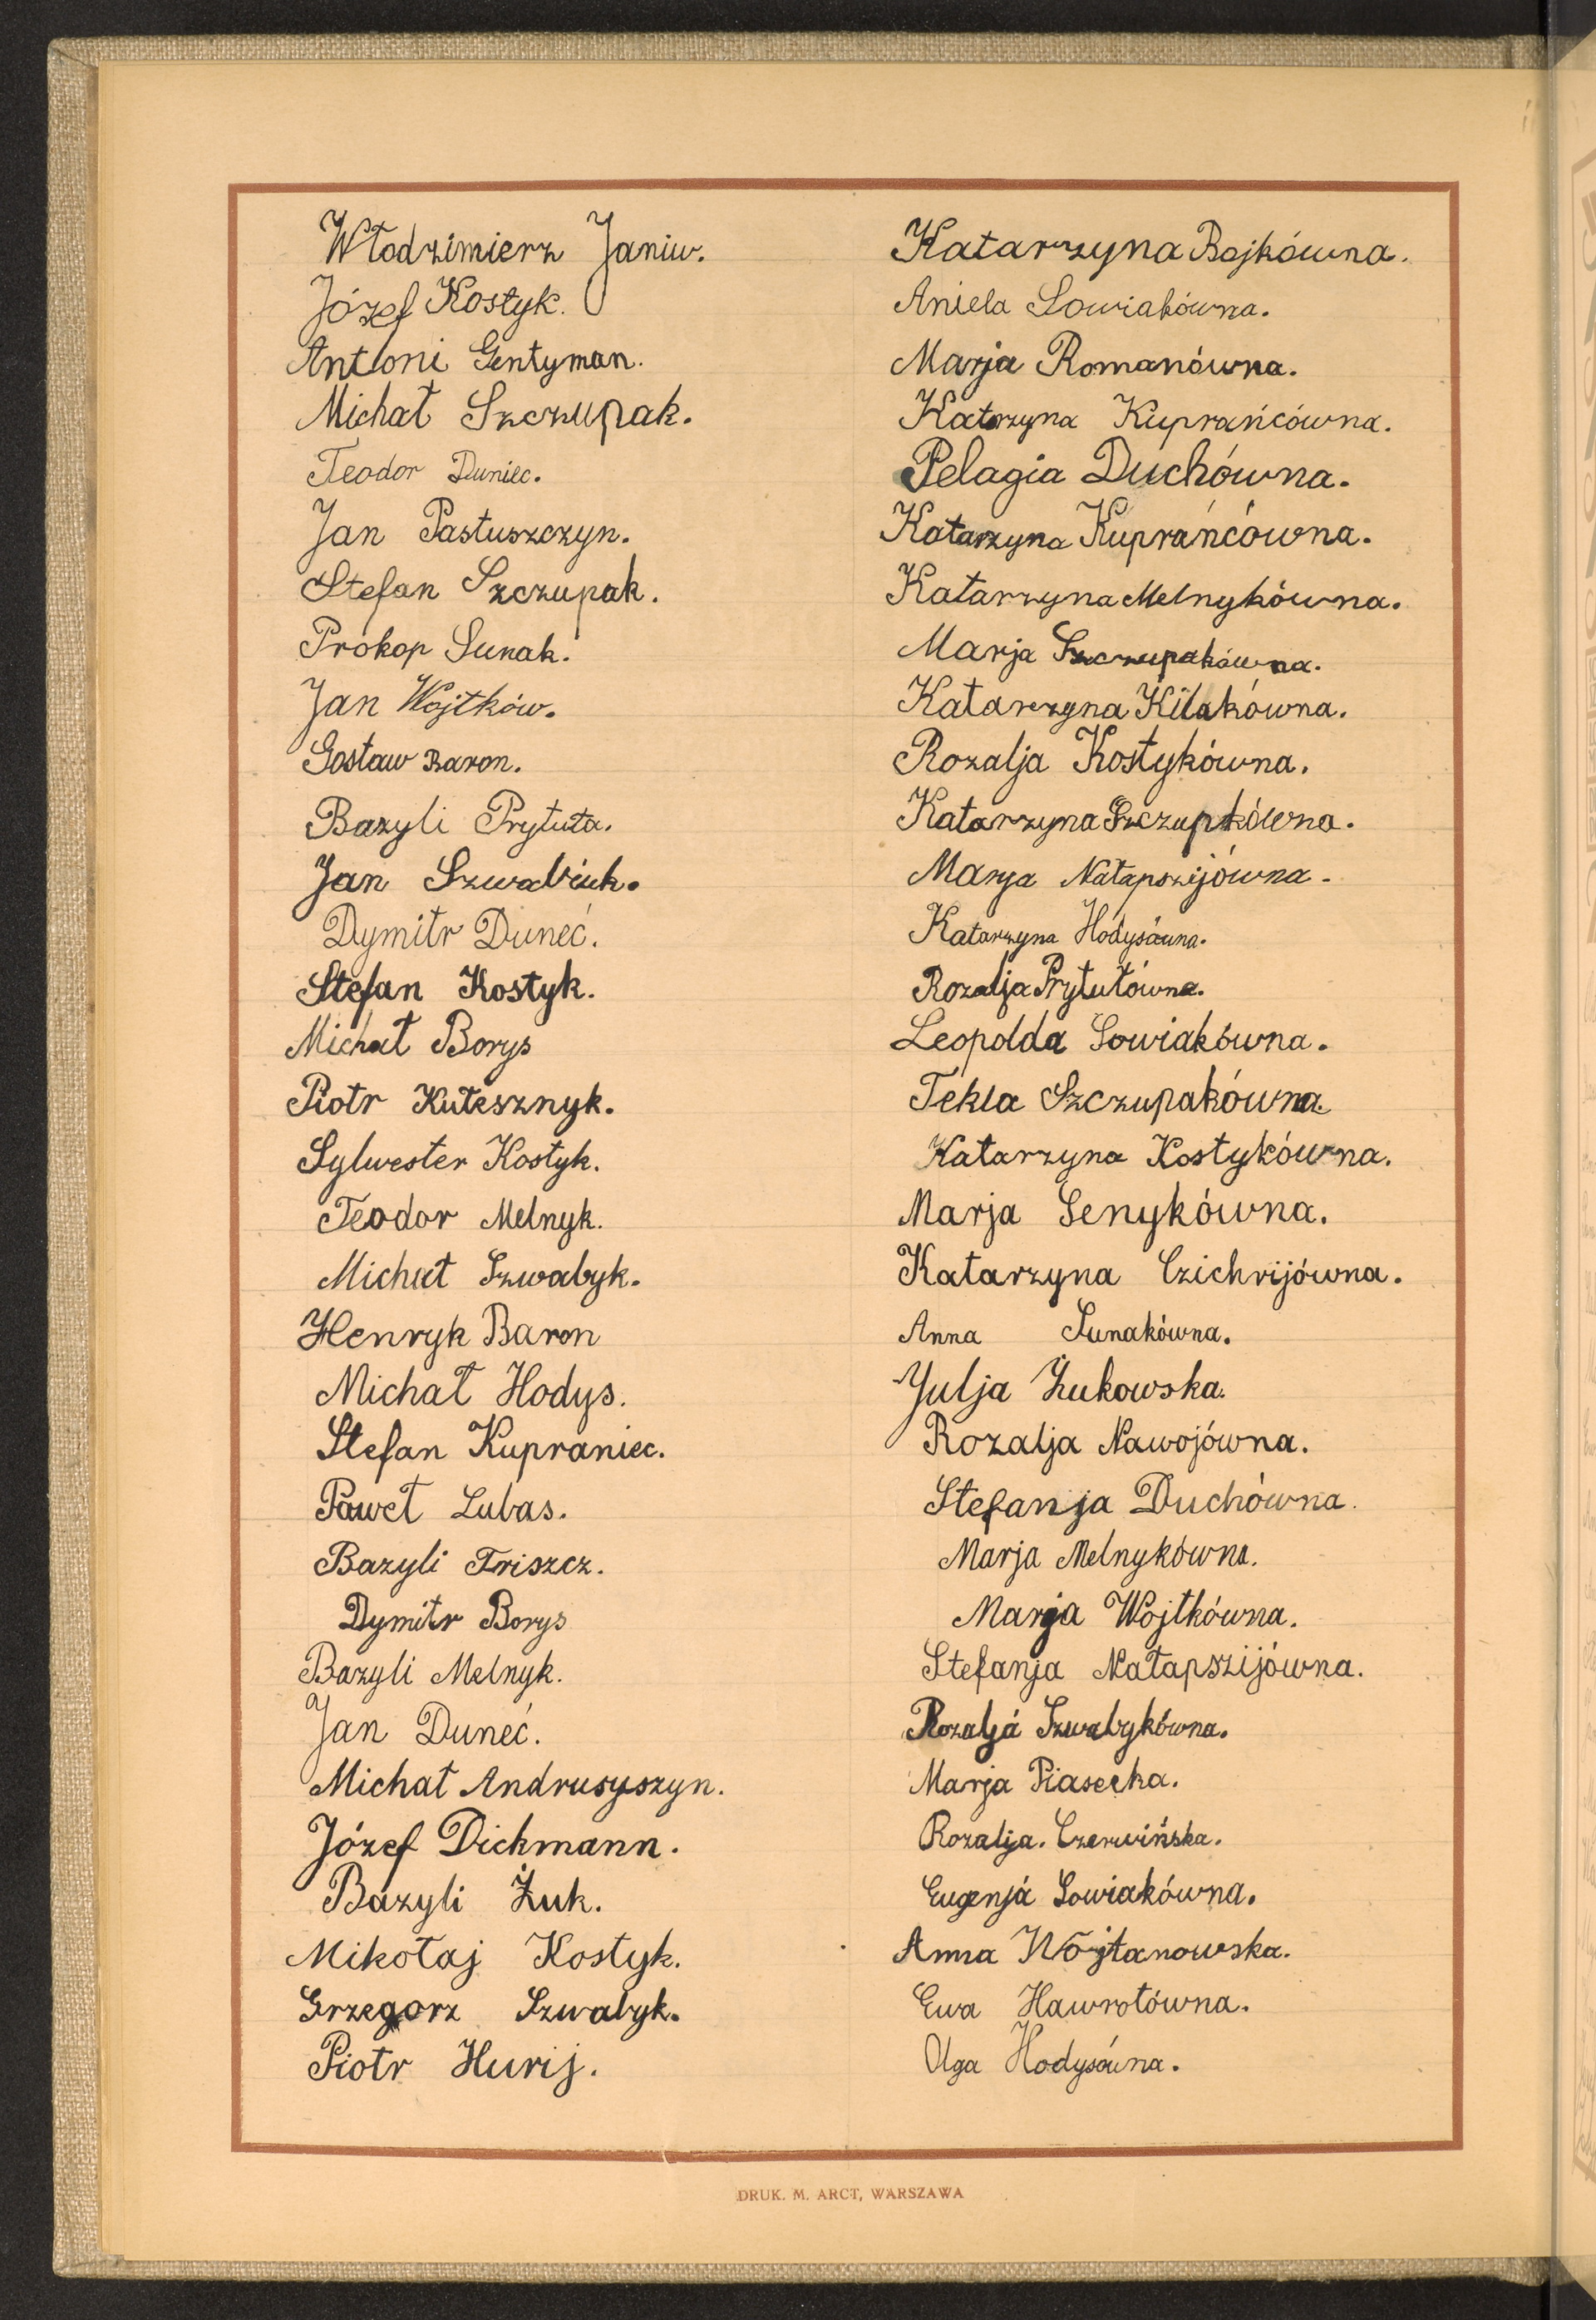 Włodzimierz Janiw.
Józef Kostyk.
Antoni Gentyman.
Michał Szczupak.
Teodor Duniec.
Jan Pastuszczyn.
Stefan Szczupak.
Prokop Sunak.
Jan Wojtków.
Gostaw Baron.
Bazyli Prytuła.
Jan Szwabiuk.
Dymitr Duneć.
Stefan Kostyk.
Michał Borys
Piotr Kulesznyk.
Sylwester Kostyk.
Teodor Melnyk.
Michał Szwabyk.
Henryk Baron
Michał Hodys.
Stefan Kupraniec.
Paweł Lubas.
Bazyli Triszcz.
Dymitr Borys
Bazyli Melnyk.
Jan Duneć.
Michał Andrusyszyn.
Józef Dickmann.
Bazyli Żuk.
Mikołaj Kostyk.
Grzegorz Szwabyk.
Piotr Hurij.
Katarzyna Bojkówna.
Aniela Sowiakówna.
Marja Romanówna.
Katarzyna Kuprańcówna.
Pelagia Duchówna.
Katarzyna Kuprańcówna.
Katarzyna Melnykówna.
Marja Szczupakówna.
Katarzyna Kilakówna.
Rozalja Kostykówna.
Katarzyna Szczupkówna.
Marja Natapszijówna.
Katarzyna Hodysówna.
Rozalja Prytułówna.
Leopolda Sowiakówna.
Tekla Szczupakówna.
Katarzyna Kostykówna.
Marja Senykówna.
Katarzyna Czichrijówna.
Anna Sunakówna.
Julja Żukowska.
Rozalja Nawojówna.
Stefanja Duchówna.
Marja Melnykówna.
Marja Wojtkówna.
Stefanja Natapszijówna.
Rozalja Szwabykówna.
Marja Piasecka.
Rozalja. Czerwińska.
Eugenja Sowiakówna.
Anna Wojtanowska.
Ewa Hawrotówna.
Olga Hodysówna.
DRUK. M. ARCT, WARSZAWA